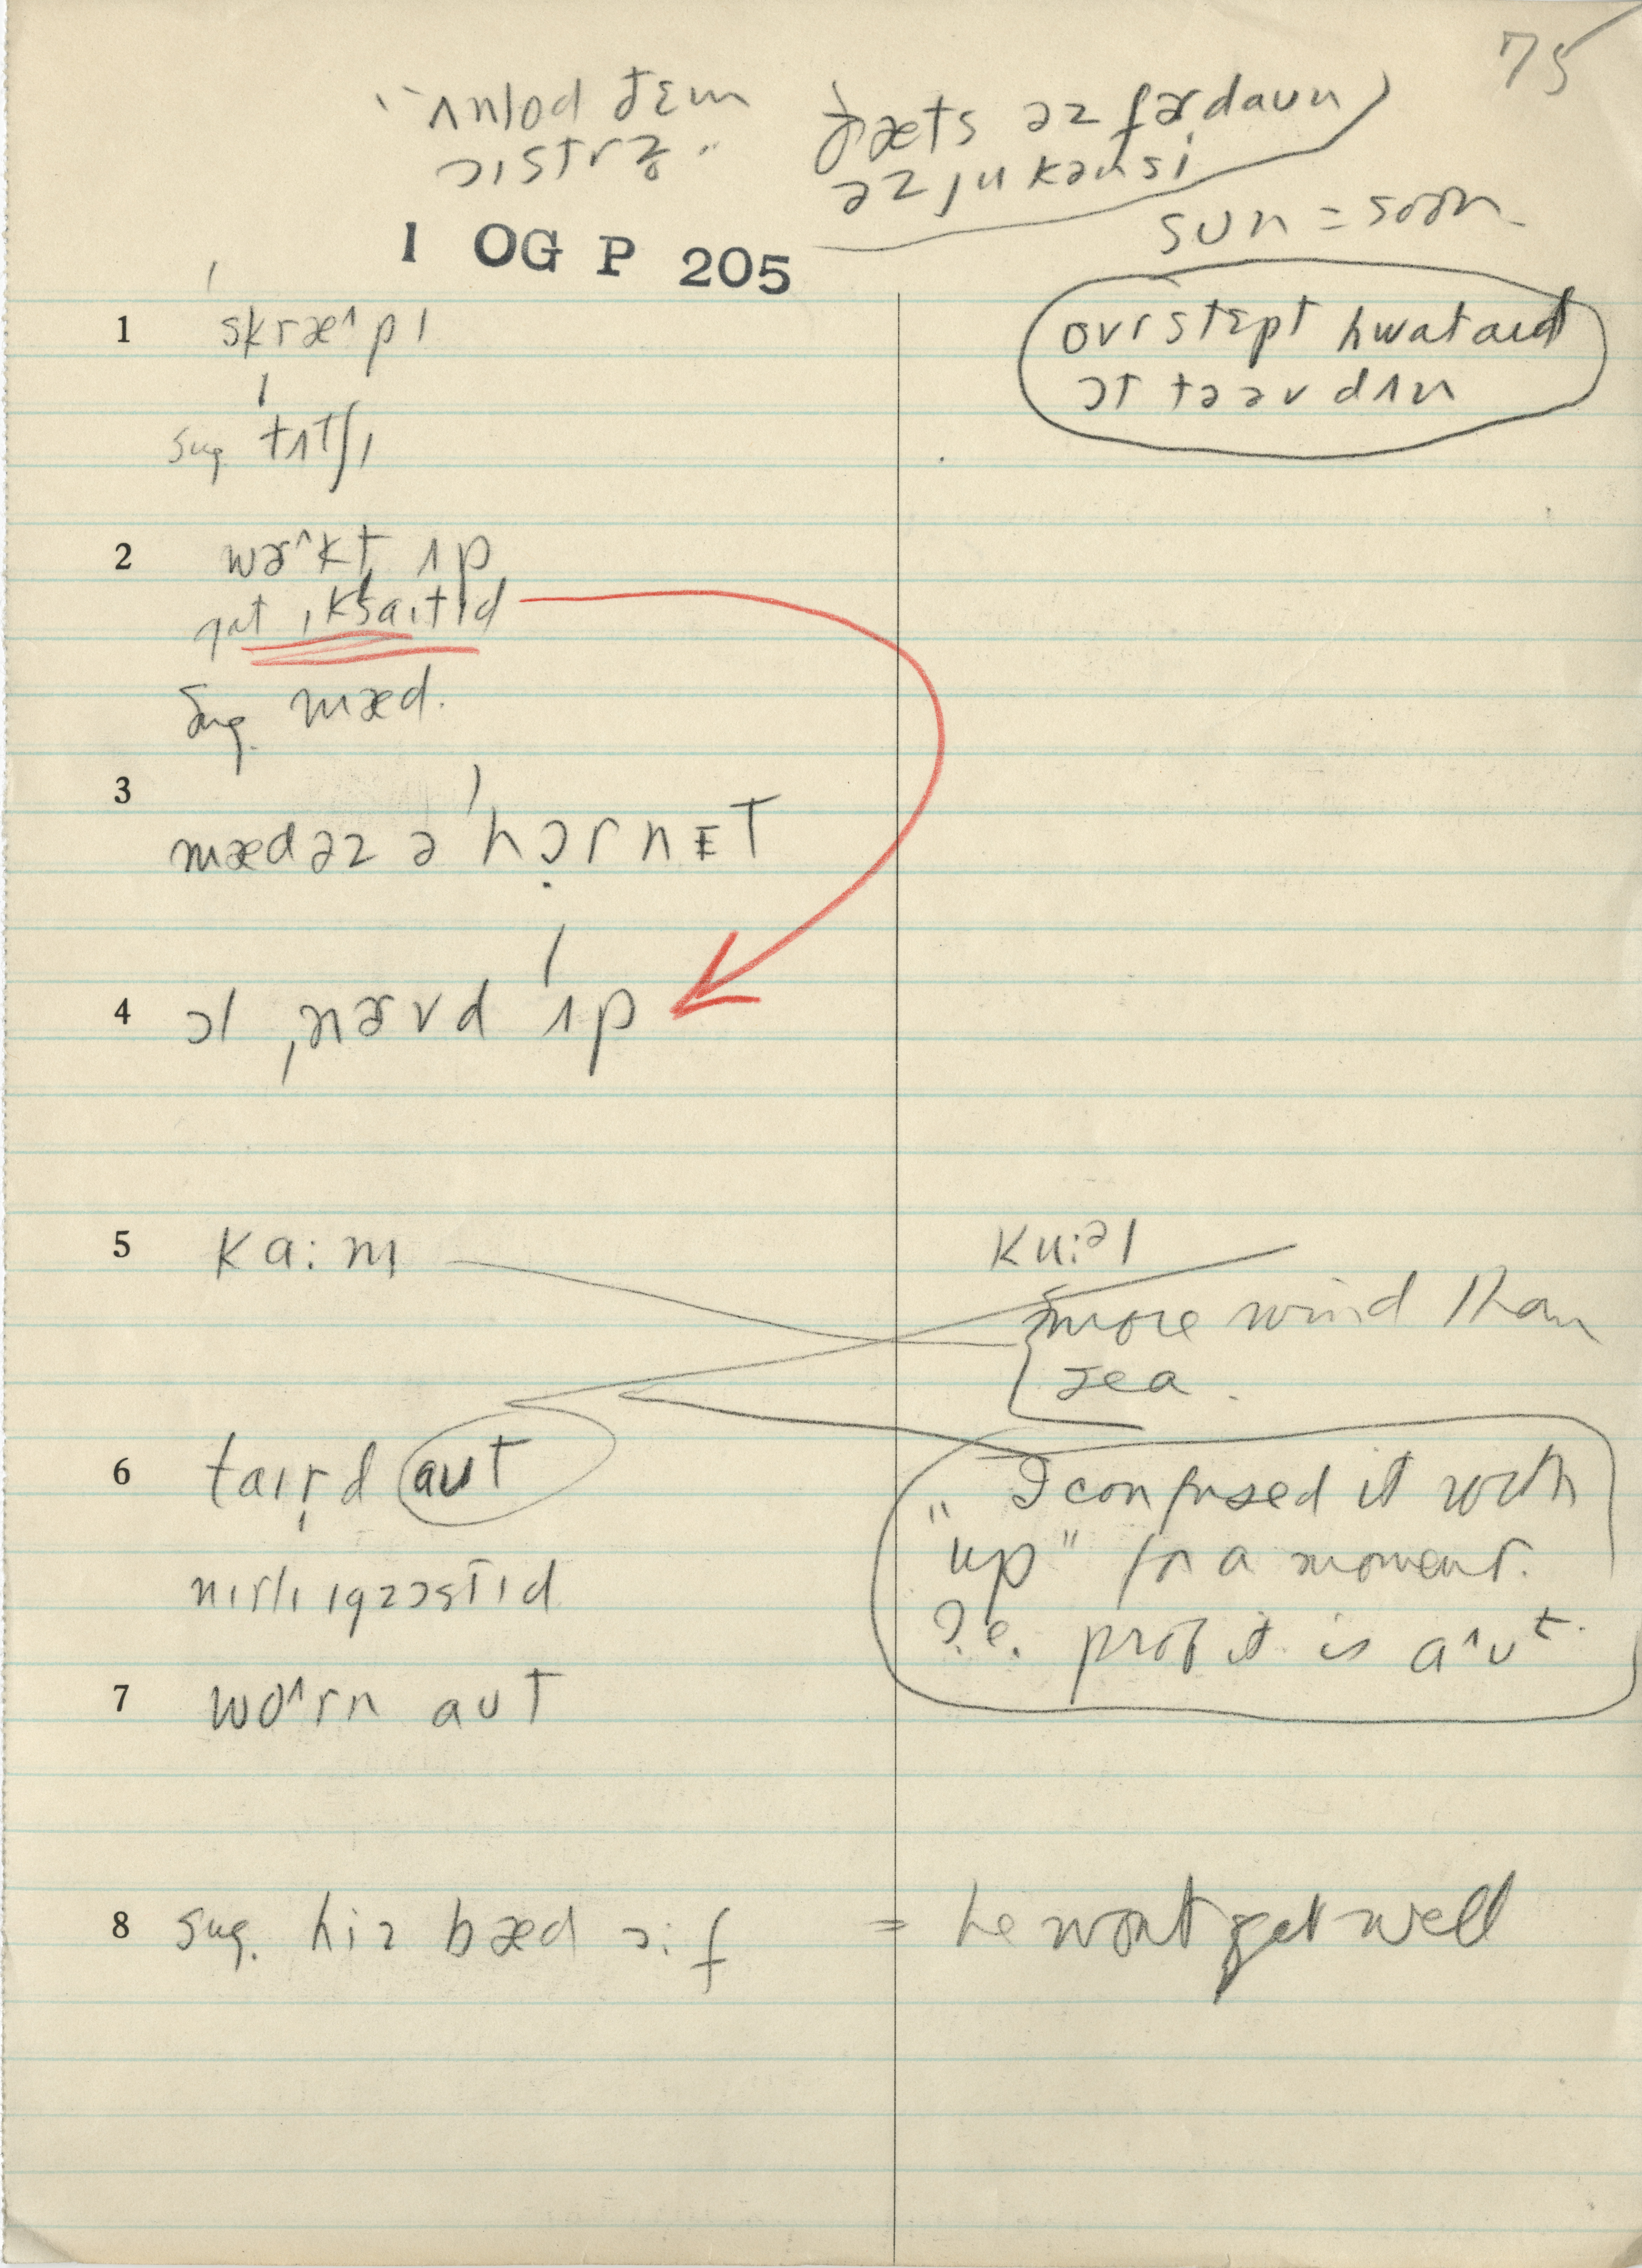 75
"ʌnlod ðɛm
ɔɪstrz̥"
ðæts əz fɚdaun
əz ju kən si
sun = soon
1 OG P 205
ovrstɛpt hwat aid
ɔt tə əv dʌn
1 'skræ^pɪ
sug 'tʌtʃɪ
2 wɚ^kt ʌp
gat ˌɪk'saˌɪtɪd
sug. mæd.
3 mæd əz ə 'hɔ̣rnɛt
4 ɔl ˌnɚvd 'ʌp
5 ka:m
ku:əl
more wind than
sea.
6 taɪr̩d aut
nɪrlɪ ɪgzɔstɪd
" I confused it with
"up" for a moment.
I.e. prof it is a^ut.
7 wo^rn aut
8 sug. hiz bæd ɔ:f = he wont get well